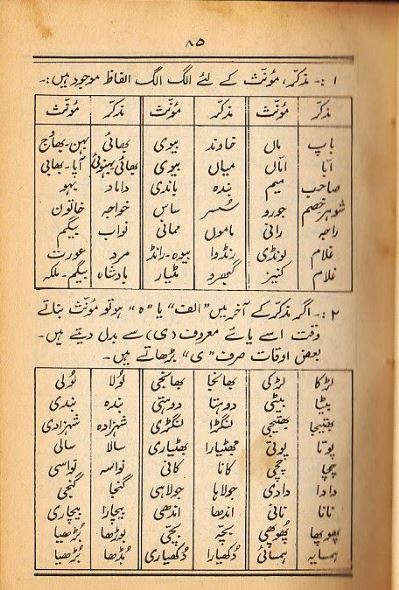 ۸۵
۱ :- مذکر، مؤنث کے لئے الگ الگ الفاظ موجود ہیں :-
مذکر مؤنث مذکر مؤنث مذکر مؤنث
باپ ماں خاوند بیوی بھائی بہن-بھاوج
ابّا امّاں میاں بیوی بھائی/بہنوئی آپا-بھابی
صاحب میم بندہ باندی داماد بہو
شوہر/خصم جورو سُسر ساس خواجہ خاتون
راجہ رانی ماموں ممانی نواب بیگم
غلام لونڈی رنڈوا بیوہ-رانڈ مرد عورت
غلام کنیز گبھرو مٹیار بادشاہ بیگم-ملکہ
۲ :- اگر مذکر کے آخر میں "الف" یا "ہ" ہو تو مؤنث بناتے
وقت اسے یائے معروف (ی) سے بدل دیتے ہیں۔
بعض اوقات صرف "ی" بڑھاتے ہیں۔
لڑکا لڑکی بھانجا بھانجی لُولا لُولی
بیٹا بیٹی دوہتا دوہتی بندہ بندی
بھتیجا بھتیجی لنگڑا لنگڑی شہزادہ شہزادی
پوتا پوتی بھٹیارا بھٹیاری سالا سالی
چچا چچی کانا کانی نواسہ نواسی
دادا دادی جولاہا جولاہی گنجا گنجی
نانا نانی اندھا اندھی بیچارا بیچاری
پھوپھا پھوپھی بچّہ بچّی بوڑھا بوڑھیا
ہمسایہ ہمسائی دُکھیارا دُکھیاری بُڈھا بُڑھیا